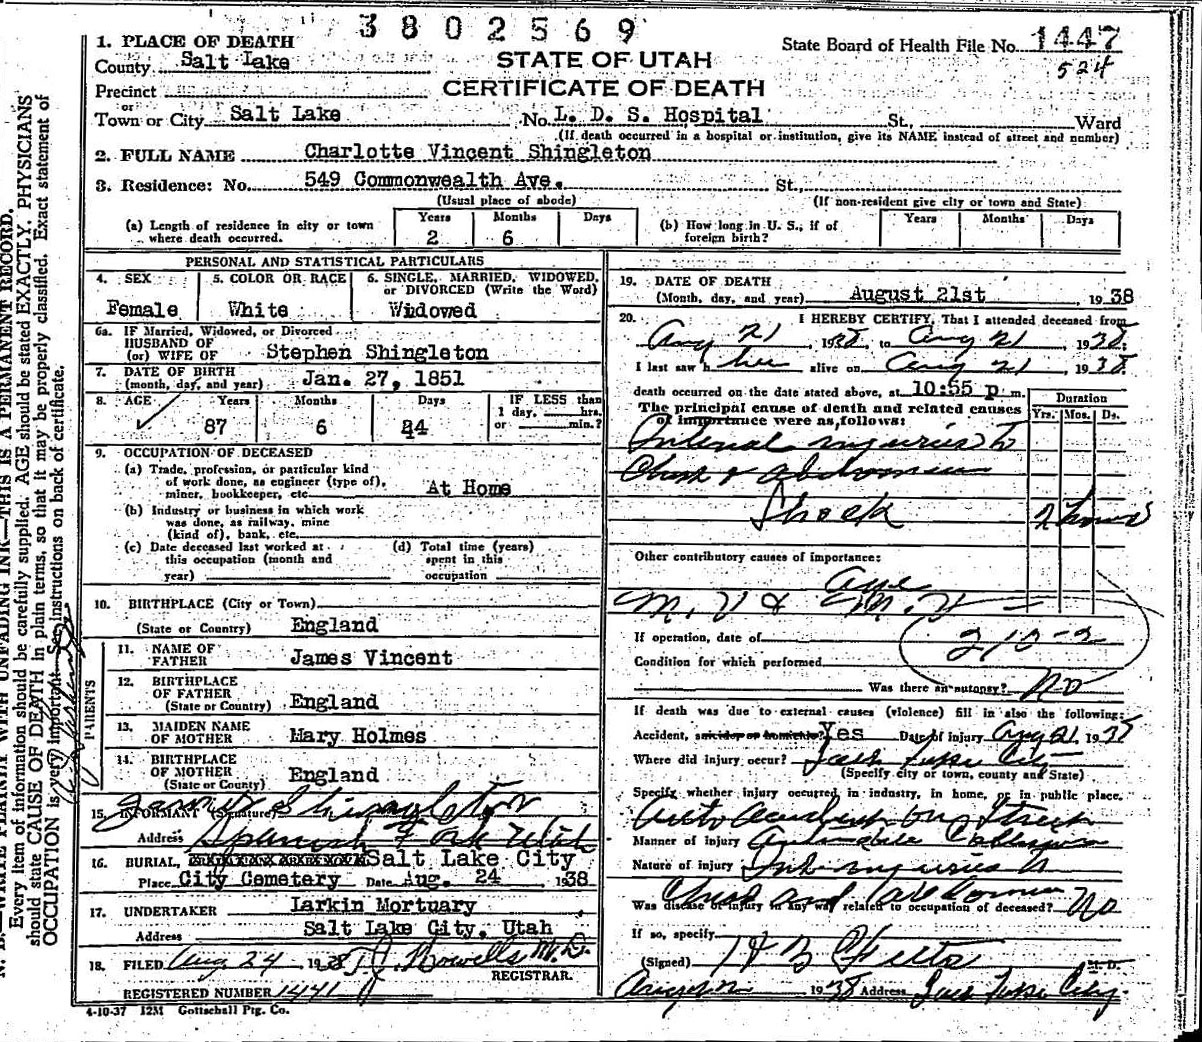 3802569
1. PLACE OF DEATH
State Board of Health File No. 1447
County Salt Lake
STATE OF UTAH
524
Precinct
CERTIFICATE OF DEATH
or
Town or City Salt Lake No. L. D. S. Hospital St., Ward
(If death occurred in a hospital or institution, give its NAME instead of street and number)
2. FULL NAME Charlotte Vincent Shingleton
3. Residence: No. 549 Commonwealth Ave. St.,
(Usual place of abode) (If non-resident give city or town and State)
(a) Length of residence in city or town where death occurred. Years 2 Months 6 Days
(b) How long in U. S., if of foreign birth? Years Months Days
PERSONAL AND STATISTICAL PARTICULARS
4. SEX Female
5. COLOR OR RACE White
6. SINGLE, MARRIED, WIDOWED, or DIVORCED (Write the Word) Widowed
6a. IF Married, Widowed, or Divorced
HUSBAND OF
(or) WIFE OF Stephen Shingleton
7. DATE OF BIRTH
(month, day, and year) Jan. 27, 1851
8. AGE Years 87 Months 6 Days 24
IF LESS than 1 day, hrs. or min.?
9. OCCUPATION OF DECEASED
(a) Trade, profession, or particular kind
of work done, as engineer (type of),
miner, bookkeeper, etc. At Home
(b) Industry or business in which work
was done, as railway, mine
(kind of), bank, etc.
(c) Date deceased last worked at
this occupation (month and
year)
(d) Total time (years)
spent in this
occupation
10. BIRTHPLACE (City or Town)
(State or Country) England
PARENTS
11. NAME OF FATHER James Vincent
12. BIRTHPLACE OF FATHER
(State or Country) England
13. MAIDEN NAME OF MOTHER Mary Holmes
14. BIRTHPLACE OF MOTHER
(State or Country) England
15. INFORMANT (Signature) Shingleton
Address Spanish Fork Utah
16. BURIAL, Salt Lake City
Place City Cemetery Date Aug. 24 1938
17. UNDERTAKER Larkin Mortuary
Address Salt Lake City, Utah
18. FILED Aug 24 1938 Howells M.D.
REGISTRAR.
REGISTERED NUMBER 1441
4-10-37 12M Gottschall Ptg. Co.
19. DATE OF DEATH
(Month, day, and year) August 21st, 1938
20. I HEREBY CERTIFY, That I attended deceased from
Aug 21, 1938, to Aug 21, 1938,
I last saw her alive on Aug 21, 1938
death occurred on the date stated above, at 10:55 p m.
The principal cause of death and related causes
of importance were as follows:
Duration
Yrs. Mos. Ds.
Internal injuries to
Chest & abdomen
Shock 2 hours
Other contributory causes of importance:
Age
M. V & M. V
If operation, date of 210-2
Condition for which performed
Was there an autopsy? No
If death was due to external causes (violence) fill in also the following:
Accident, suicide or homicide? Yes Date of injury Aug 21, 1938
Where did injury occur? Salt Lake City
(Specify city or town, county and State)
Specify whether injury occurred in industry, in home, or in public place.
Auto Accident on Street
Manner of injury Automobile Collision
Nature of injury Int. injuries to
Chest and abdomen
Was disease or injury in any way related to occupation of deceased? No
If so, specify
(Signed) M. D.
1938 Address Salt Lake City
N. B.—WRITE PLAINLY WITH UNFADING INK—THIS IS A PERMANENT RECORD.
Every item of information should be carefully supplied. AGE should be stated EXACTLY. PHYSICIANS
should state CAUSE OF DEATH in plain terms, so that it may be properly classified. Exact statement of
OCCUPATION is very important. See instructions on back of certificate.